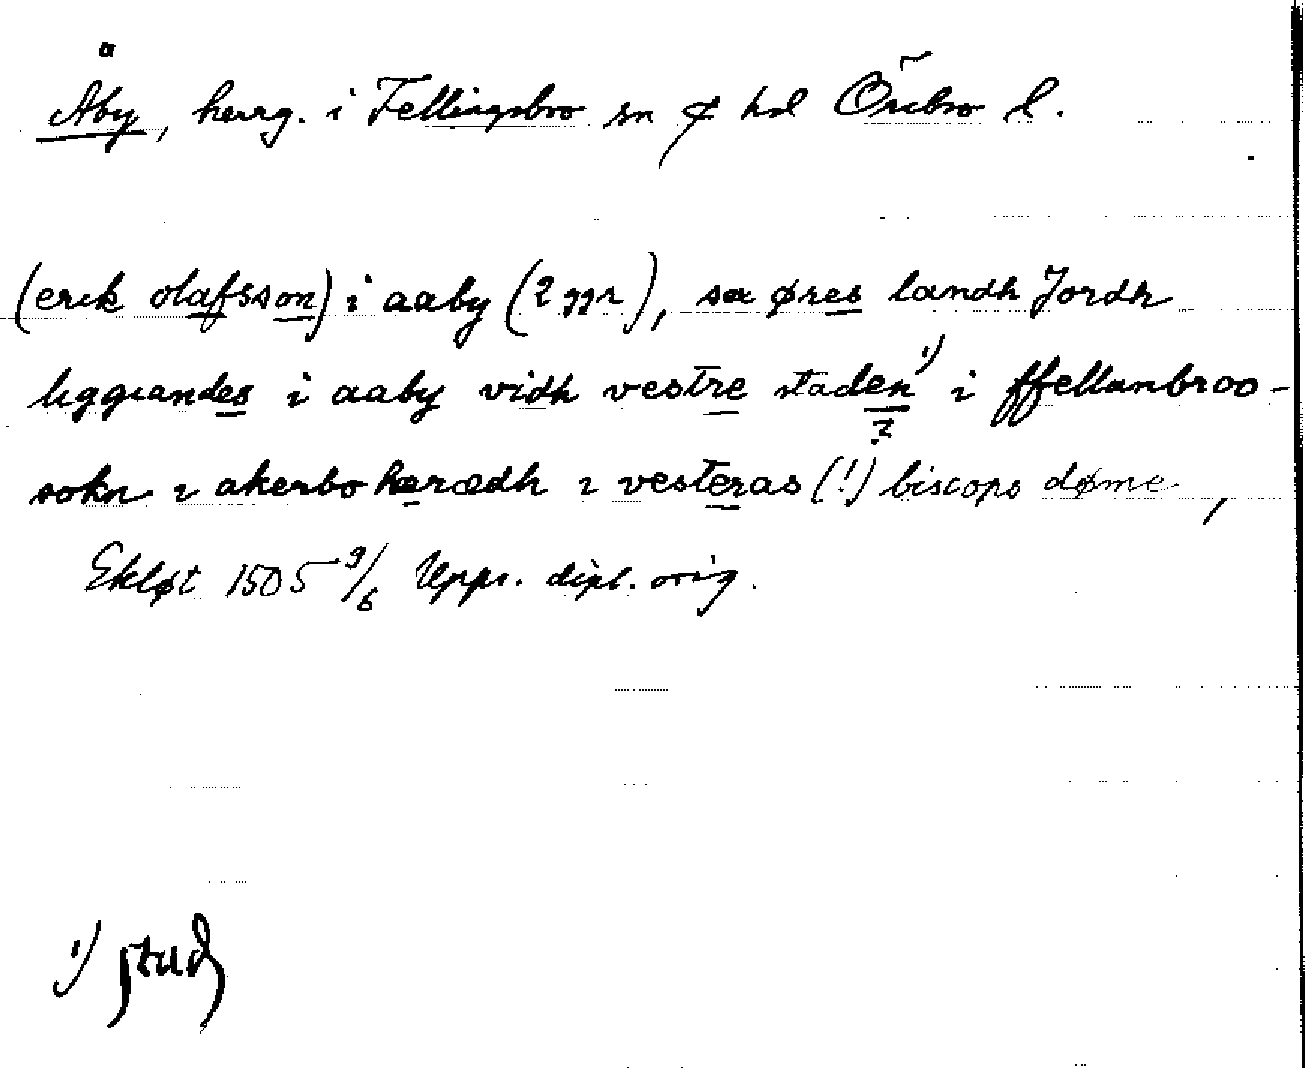 Åby, herrg. i Fellingsbro sn o hd Örebro l.
(erik olafsson) i aaby (2 ggr), sæ øres landh Jordh
liggiandes i aaby vidh vestre staden¹⁾ i ffellanbroo-
?
sokn i akerbo hærædh i vesteras (!) biscops døme,
Ekløt 1505 9/6 Upps. dipl. orig.
¹⁾ stad